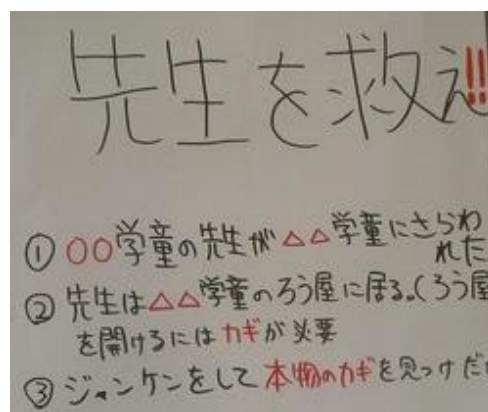 先生を救え!!
① ○○学童の先生が△△学童にさらわ
れた
② 先生は△△学童のろう屋に居る。(ろう屋
を開けるにはカギが必要
③ ジャンケンをして本物のカギを見つけだ